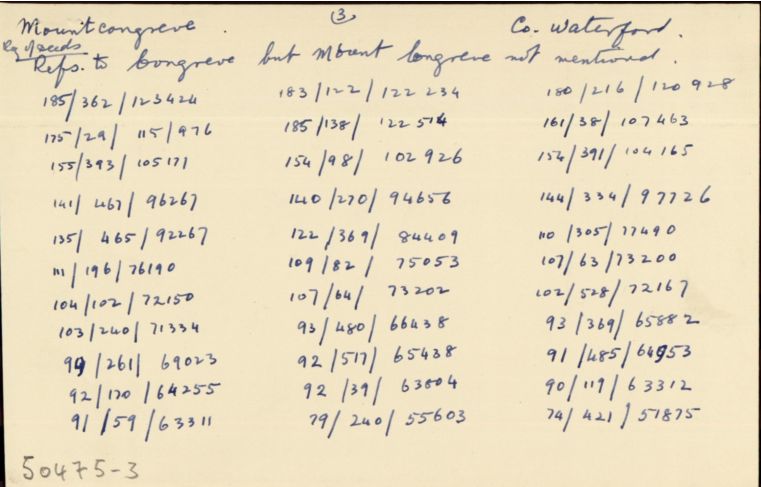 Mount congreve. (3) Co. Waterford.
Reg of deeds
Refs. to Congreve but Mount Congreve not mentioned.
185/362/123424 183/122/122 234 180/216/120 928
175/29/ 115/976 185/138/ 122 514 161/38/107463
155/393/105171 154/98/ 102 926 154/391/104 165
141/467/96267 140/270/ 94656 144/334/97726
135/ 465/92267 122/369/ 84409 110/305/77490
111/196/76190 109/82/ 75053 107/63/73200
104/102/72150 107/64/ 73202 102/528/72167
103/240/71334 93/480/ 66438 93/369/65882
99/261/ 69023 92/517/ 65438 91/485/64953
92/170/64255 92/39/ 63804 90/119/63312
91/59/63311 79/240/55603 74/421/51875
50475-3